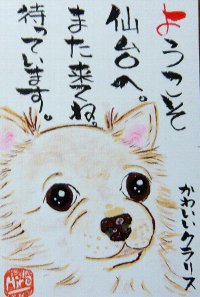 ようこそ
仙台へ。
また来てね。
待っています。
かわいいクラリス
Hiro